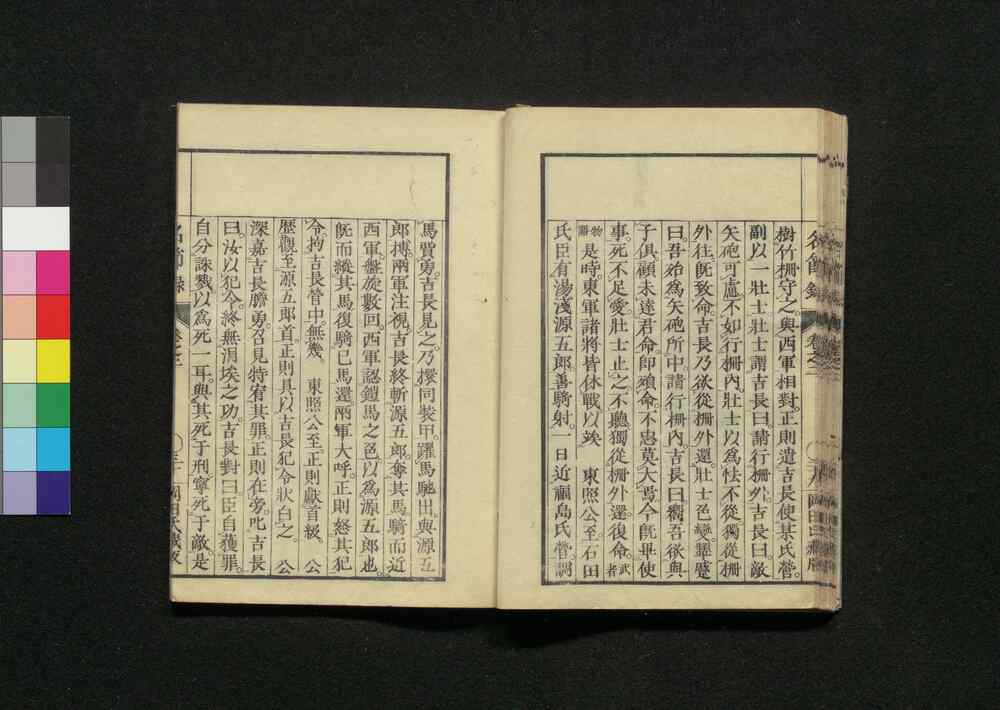 樹竹柵守之與西軍相對正則遣吉長使某氏營
副以一壯士壯士謂吉長曰請行柵外吉長曰敵
矢砲可慮不如行柵內壯士以爲怯不從獨從柵
外往旣致命吉長乃欲從柵外還壯士色變躊躇
曰吾殆爲矢砲所中請行柵內吉長曰嚮吾欲與
子俱顧未達君命卽殞命不忠莫大焉今旣畢使
事死不足愛壯士止之不聽獨從柵外還復命武者
物語是時東軍諸將皆休戰以竢 東照公至石田
氏臣有湯淺源五郎善騎射一日近福島氏營調
馬賈勇吉長見之乃擐同裝甲躍馬馳出與源五
郎搏兩軍注視吉長終斬源五郎奪其馬騎而近
西軍盤旋數回西軍認鎧馬之色以爲源五郎也
旣而縱其馬復騎己馬還兩軍大呼正則怒其犯
令拘吉長營中無幾 東照公至正則獻首級 公
歷觀至源五郎首正則具以吉長犯令狀白之 公
深嘉吉長膽勇召見特宥其罪正則在旁叱吉長
曰汝以犯令終無涓埃之功吉長對曰臣自獲罪
自分誅戮以爲死一耳與其死于刑寧死于敵是
名節錄 卷之二